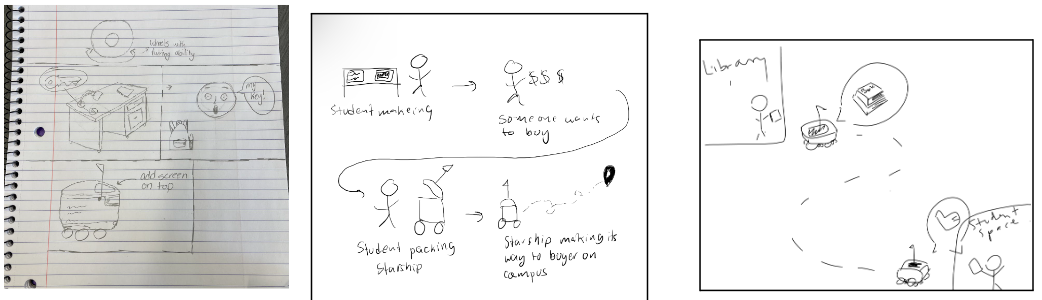 Wheels with
turning ability
my
key!
add screen
on top
Student makeing
$ $ $
Someone wants
to buy
Student packing
Starship
Starship making its
way to buyer on
campus
Library
Student
Space